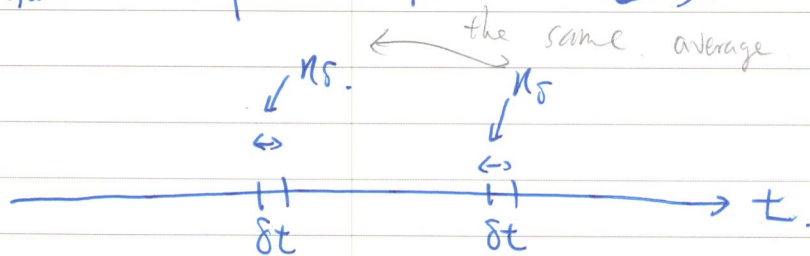 the same average
nδ.
nδ
t.
δt
δt